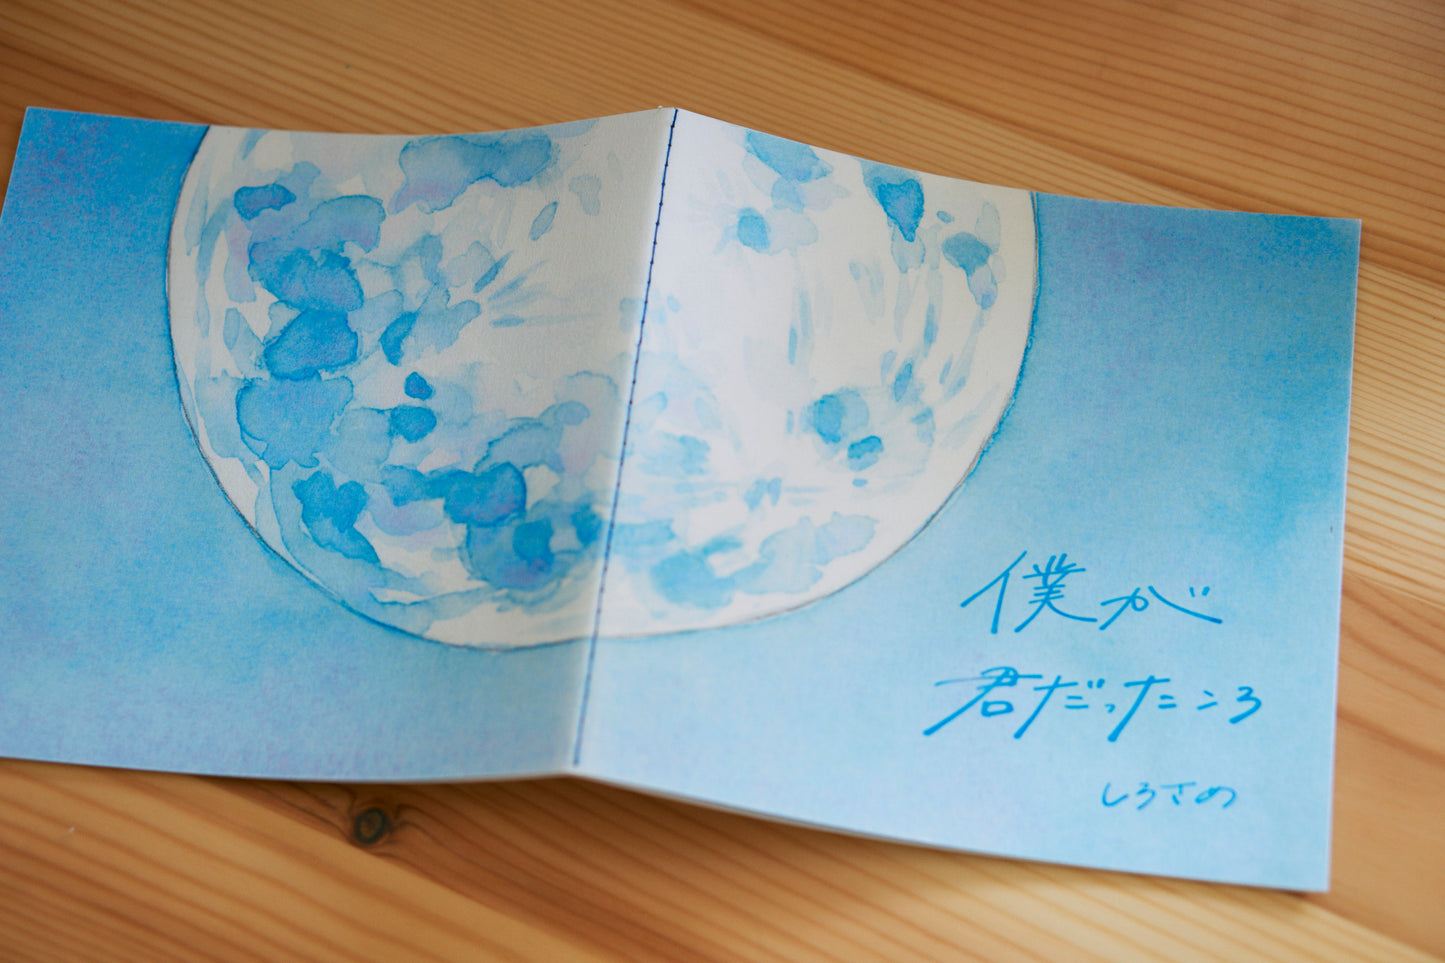 僕が
君だったころ
しろさめ